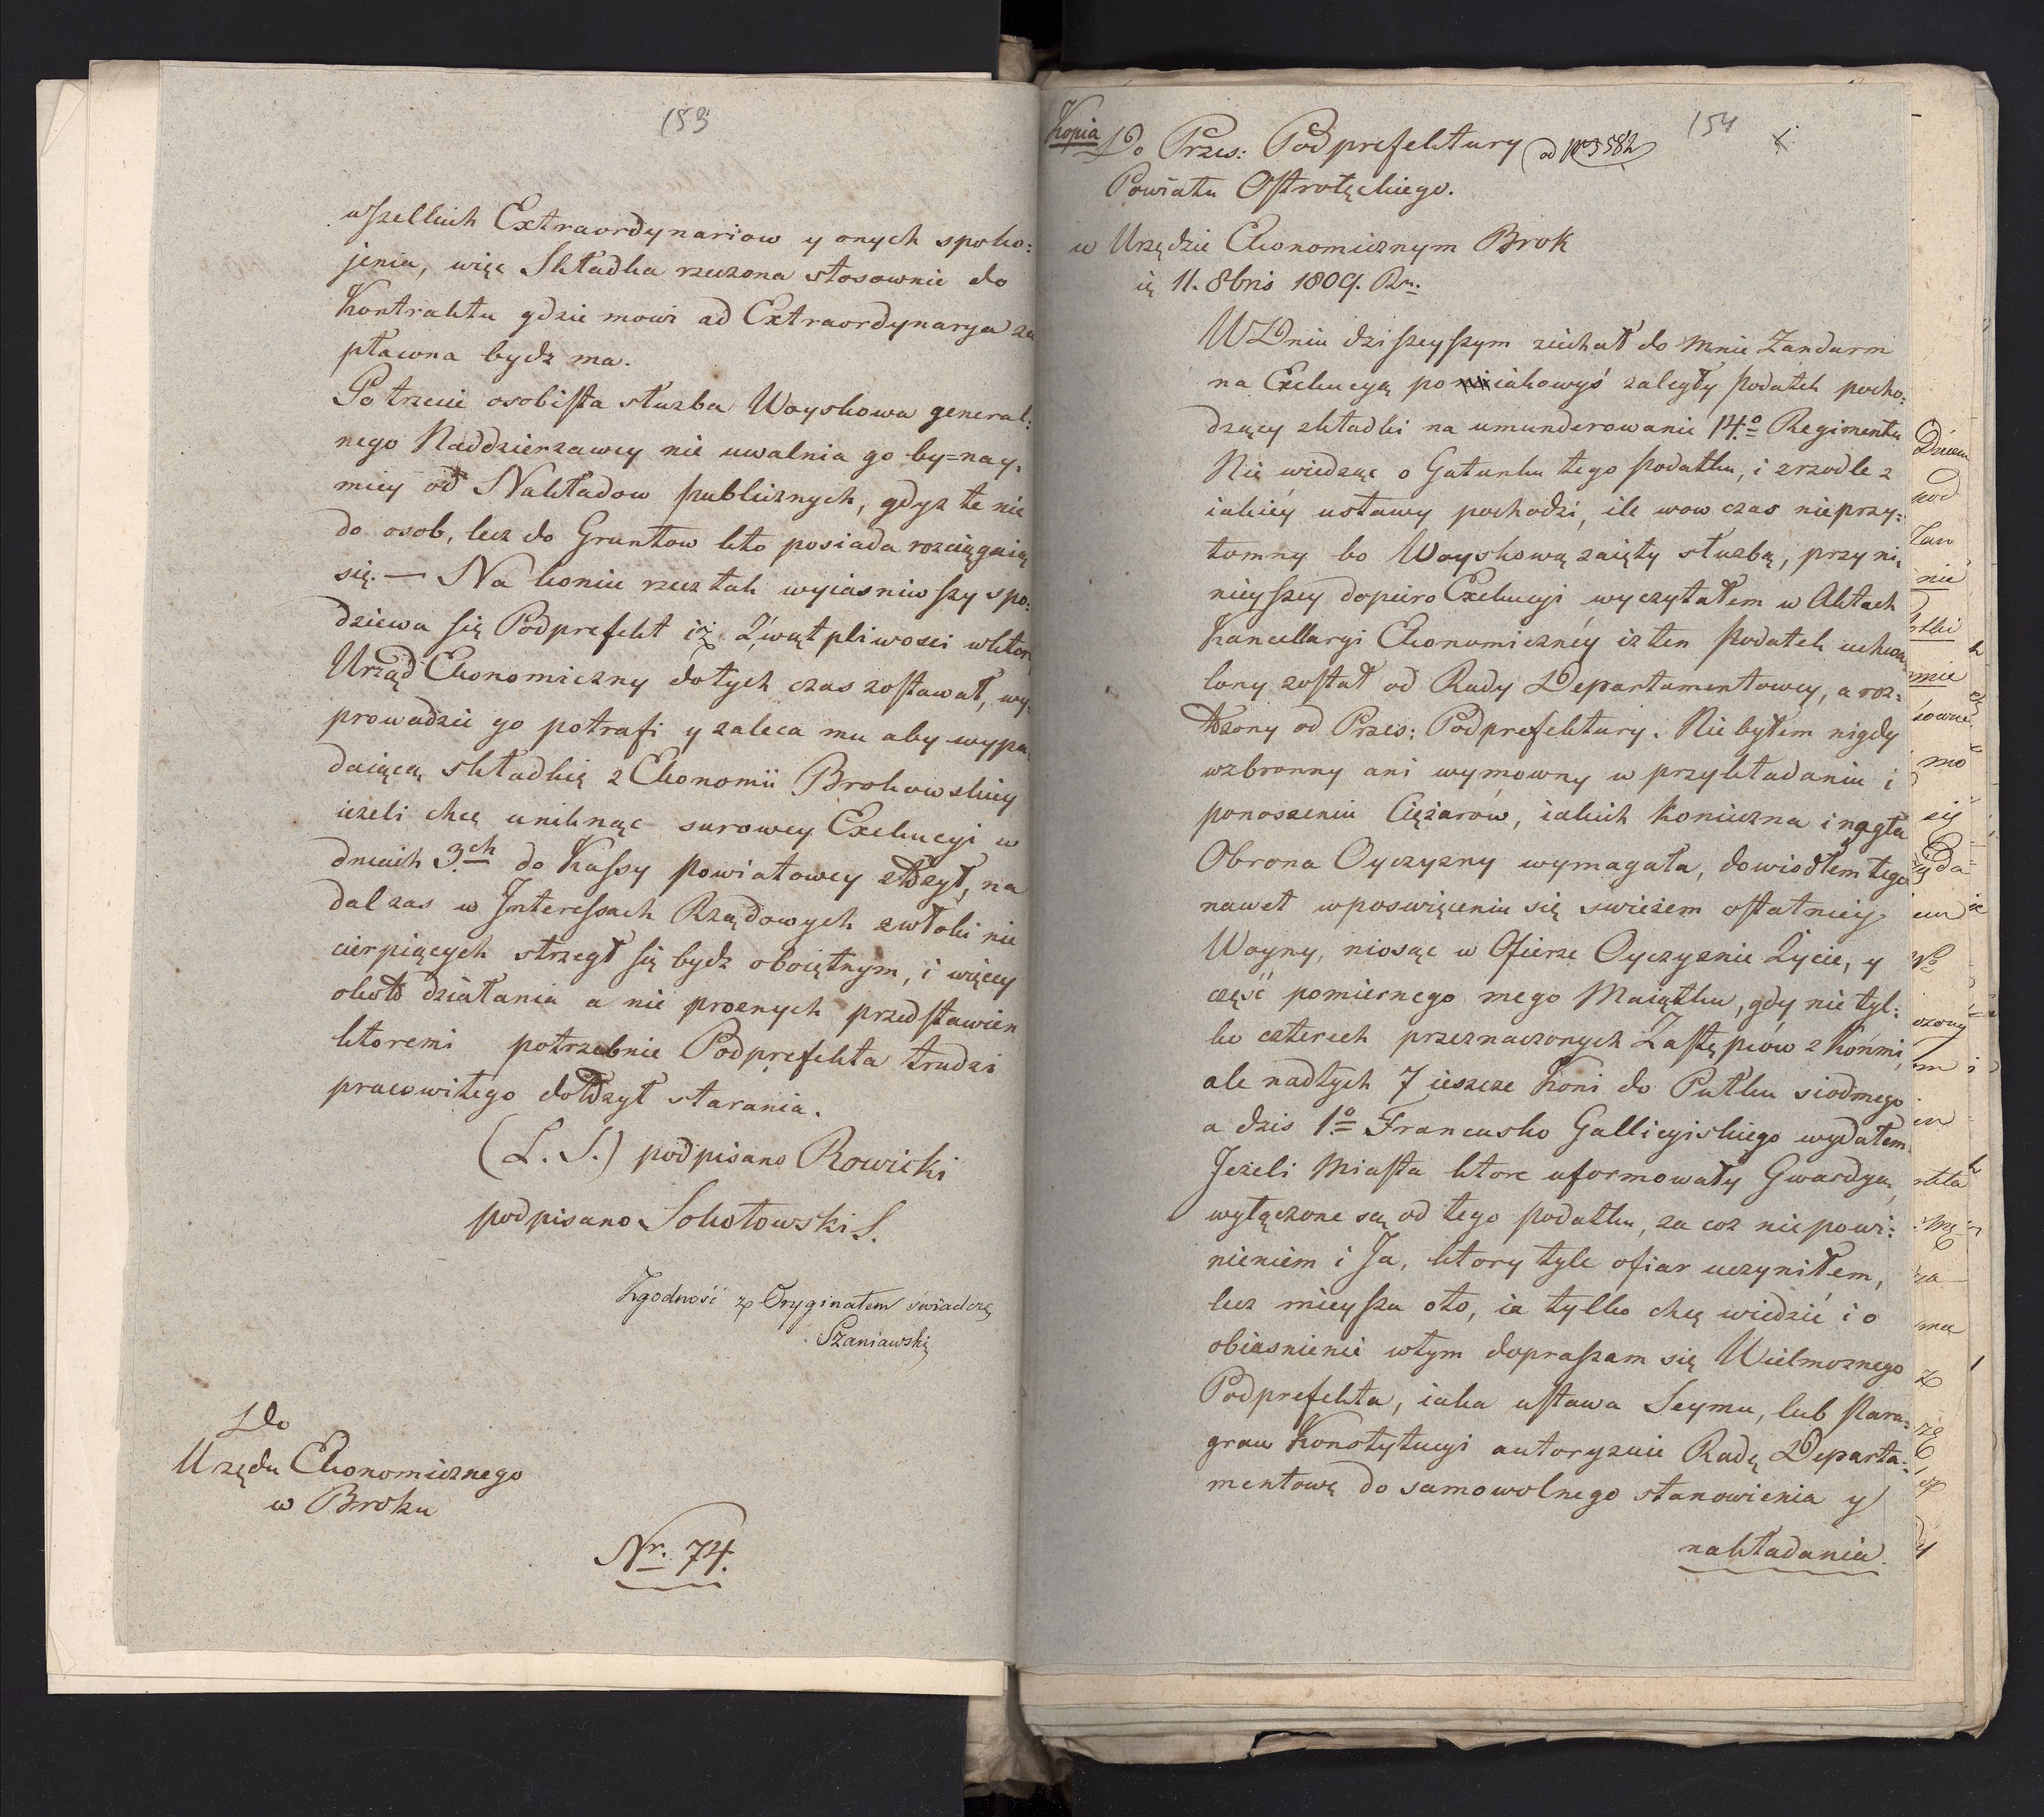 153
wszelkich Extraordynariow y onych spoko:
jenia, więc Składka rzeczona stosownie do
Kontraktu gdzie mowi ad Extraordynarya za
pławna bydz ma.
Po trzecie osobista służba Woyskowa general:
nego Naddzierzawcy nie uwalnia go by=nay,
mięy od Nakładow publicznych, gdyz te nie
do osob, lecz do Gruntow kto posiada rozciągaią
się. — Na koniec rzecz tak wyiasniwszy spo:
dziewa się Podprefekt iż z wątpliwosci w ktor
Urząd Ekonomiczny dotych czas zostawał, wy:
prowadzic go potrafi y zaleca mu aby wypa,
daiącą składkię z Ekonomii Brokowskiey
ieżeli chcę uniknąc surowey Exekucyi w
dniach 3.ch do Kassy powiatowey złożył, na
dal zas w Interessach Rządowych zwłoki nie
cierpiących strzegł się bydz oboiętnym, i więcey
około działania a nie proznych przedstawien
ktoremi potrzebnie Podprefekta trudzi
pracowitego dołożył starania.
(L. S.) podpisano Rowicki
podpisano Sokołowski S.
Zgodność z Oryginałem świadczę
Szaniawski
Do
Urzędu Ekonomicznego
w Broku
Nr. 74.
154
Kopia Do Przes: Podprefektury ad No 3582
Powiatu Ostrołęckiego.
w Urzędzie Ekonomicznym Brok
11. 8bris 1809. R.
W Dniu dzisieyszym ziechał do mnie Zandarm
na Exekucyą po iakowyś zaległy podatek pocho:
dzący składki na umunderowanie 14.o Regimentu
Nie wiedząc o Gatunku tego podatku, i zrzodle z
iakiey ustawy pochodzi, ile wow czas nieprzy:
tomny bo Woyskową zaięty służbą, przy ni,
nieyszey dopiero Exekucyi wyczytałem w Aktach
Kancellaryi Ekonomiczney iz ten podatek uchwa,
lony został od Rady Departamentowey, a roz:
łożony od Przes: Podprefektury. Nie byłem nigdy
wzbronny ani wymowny w przykładaniu i
ponoszeniu Ciężarów, iakich Konieczna i nagła
Obrona Oyczyzny wymagała, dowiodłem tego
nawet w poswięceniu się swieżem ostatniey
Woyny, niosąc w Ofierze Oyczyznie Życie, y
część pomiernego mego Maiątku, gdy nie tyl:
ko czterech przeznaczonych Zastępców z Końmi,
ale nad tych 7 ieszcze Koni do Pułku siodmego
a dzis 1.o Francusko Gallicyiskiego wydałem.
Jeżeli Miasta ktore uformowały Gwardya,
wyłączone są od tego podatku, za coz nie powi:
nieniem i Ja, ktory tyle ofiar uczyniłem,
lecz mieysza oto, ia tylko chcę wiedzić i o
obiasnienie w tym dopraszam się Wielmoznego
Podprefekta, iaka ustawa Seymu, lub para:
graw Konstytucyi autoryzuie Radę Departa:
mentową do samowolnego stanowienia y
nakładania.